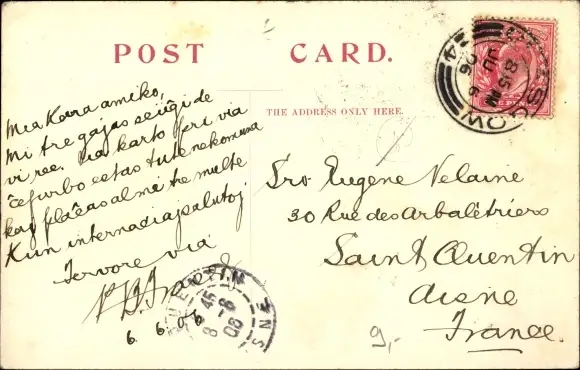 POST CARD.
THE ADDRESS ONLY HERE.
Mia Kara amiko,
Mi tre gajas
vi ree. karto pri via
ĉefurbo estas tute nekomuna
kaj plaĉas al mi tre multe
Kun internaciaj salutoj.
Fervore via
6. 6. 06
Sro Eugène Velaine
30 Rue des Arbalétriers
Saint Quentin
Aisne
France.
9,-
GLASGOW
8 15 M
JU 6
06